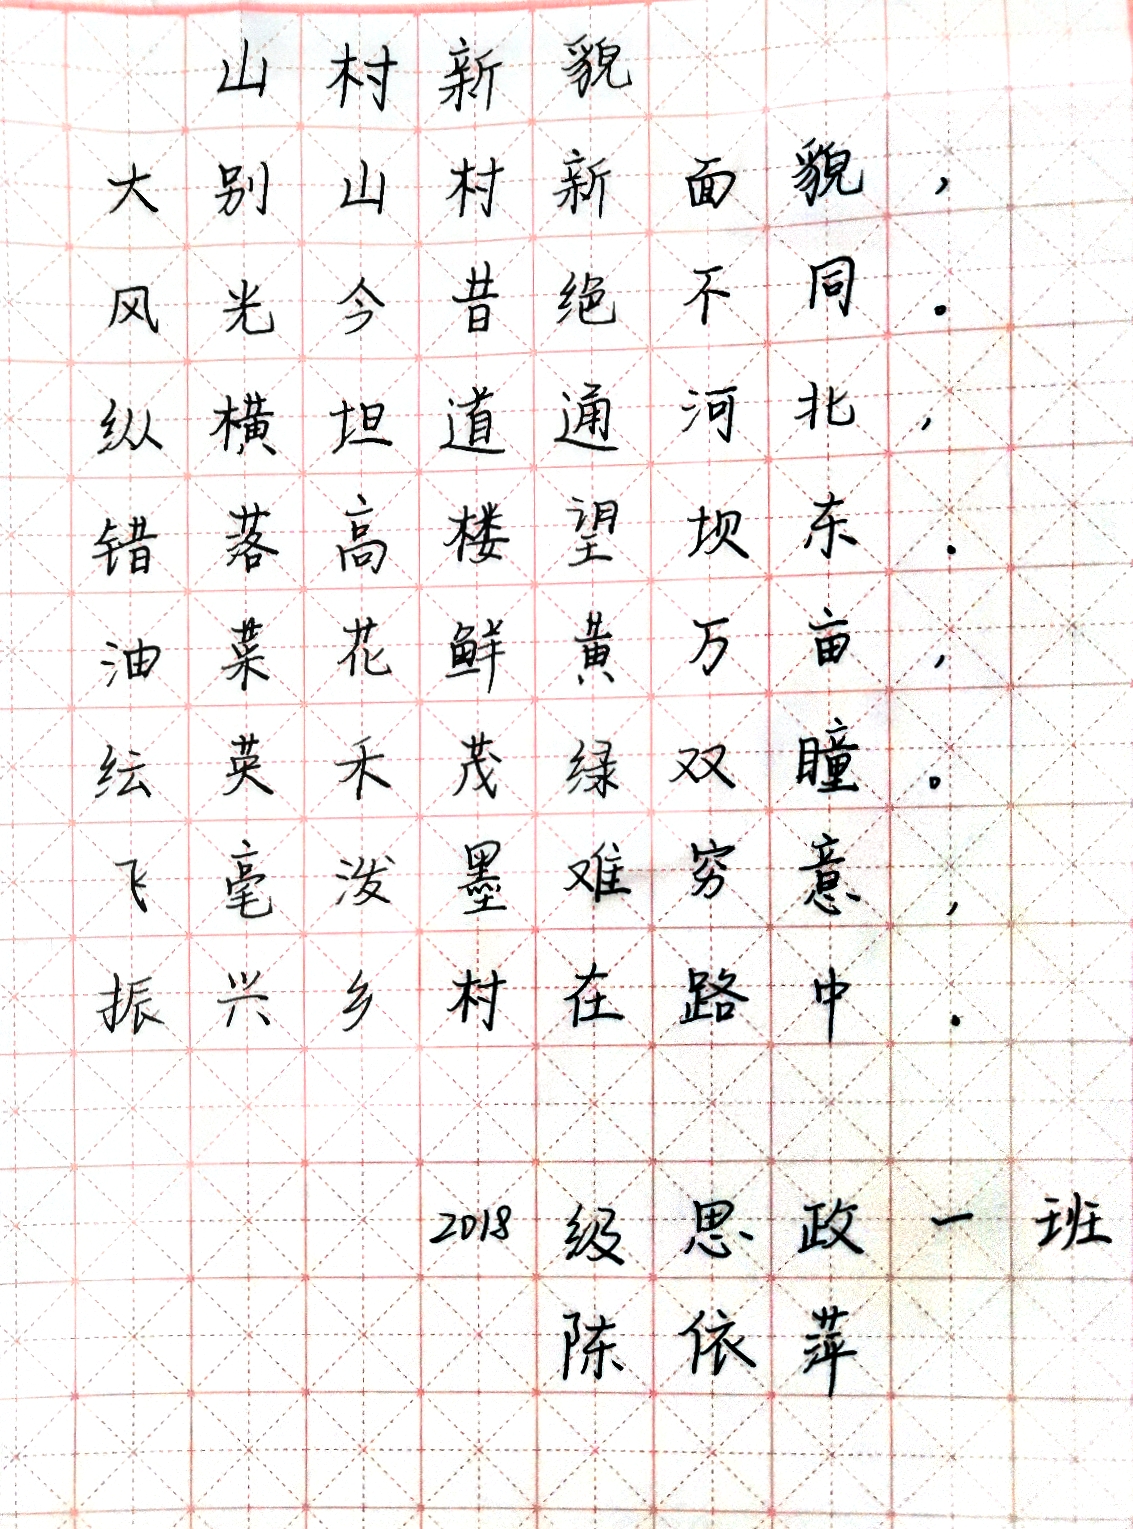 山村新貌
大别山村新面貌，
风光今昔绝不同。
纵横坦道通河北，
错落高楼望坝东.
油菜花鲜黄万亩，
纭英禾茂绿双瞳。
飞毫泼墨难穷意，
振兴乡村在路中.
2018级思政一班
陈依萍